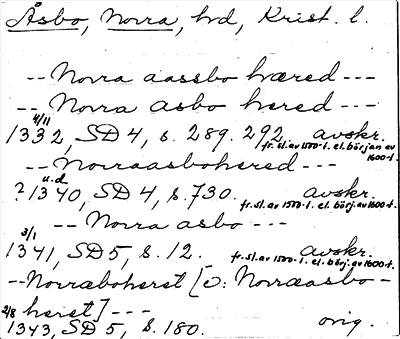 Åsbo, Norra, hd, Krist. l.
-- Norra aassbo hæred ---
-- Norra asbo hered ---
4/11
1332, SD 4, s. 289. 292. avskr.
fr. sl. av 1500-t. el. början av 1600-t.
-- Norraasbohered ---
u.d
? 1340, SD 4, s. 730. avskr.
fr. sl. av 1500-t. el. börj. av 1600-t.
-- Norra asbo ---
3/1
1341, SD 5, s. 12. avskr.
fr. sl. av 1500-t. el. börj. av 1600-t.
-- Norræboherst [ɔ: Norræasbo-
herst] ---
2/8
1343, SD 5, s. 180. orig.